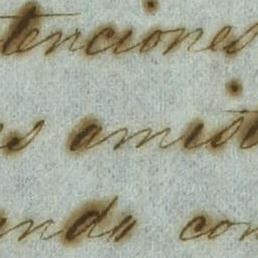 tenciones
s amist
ando con